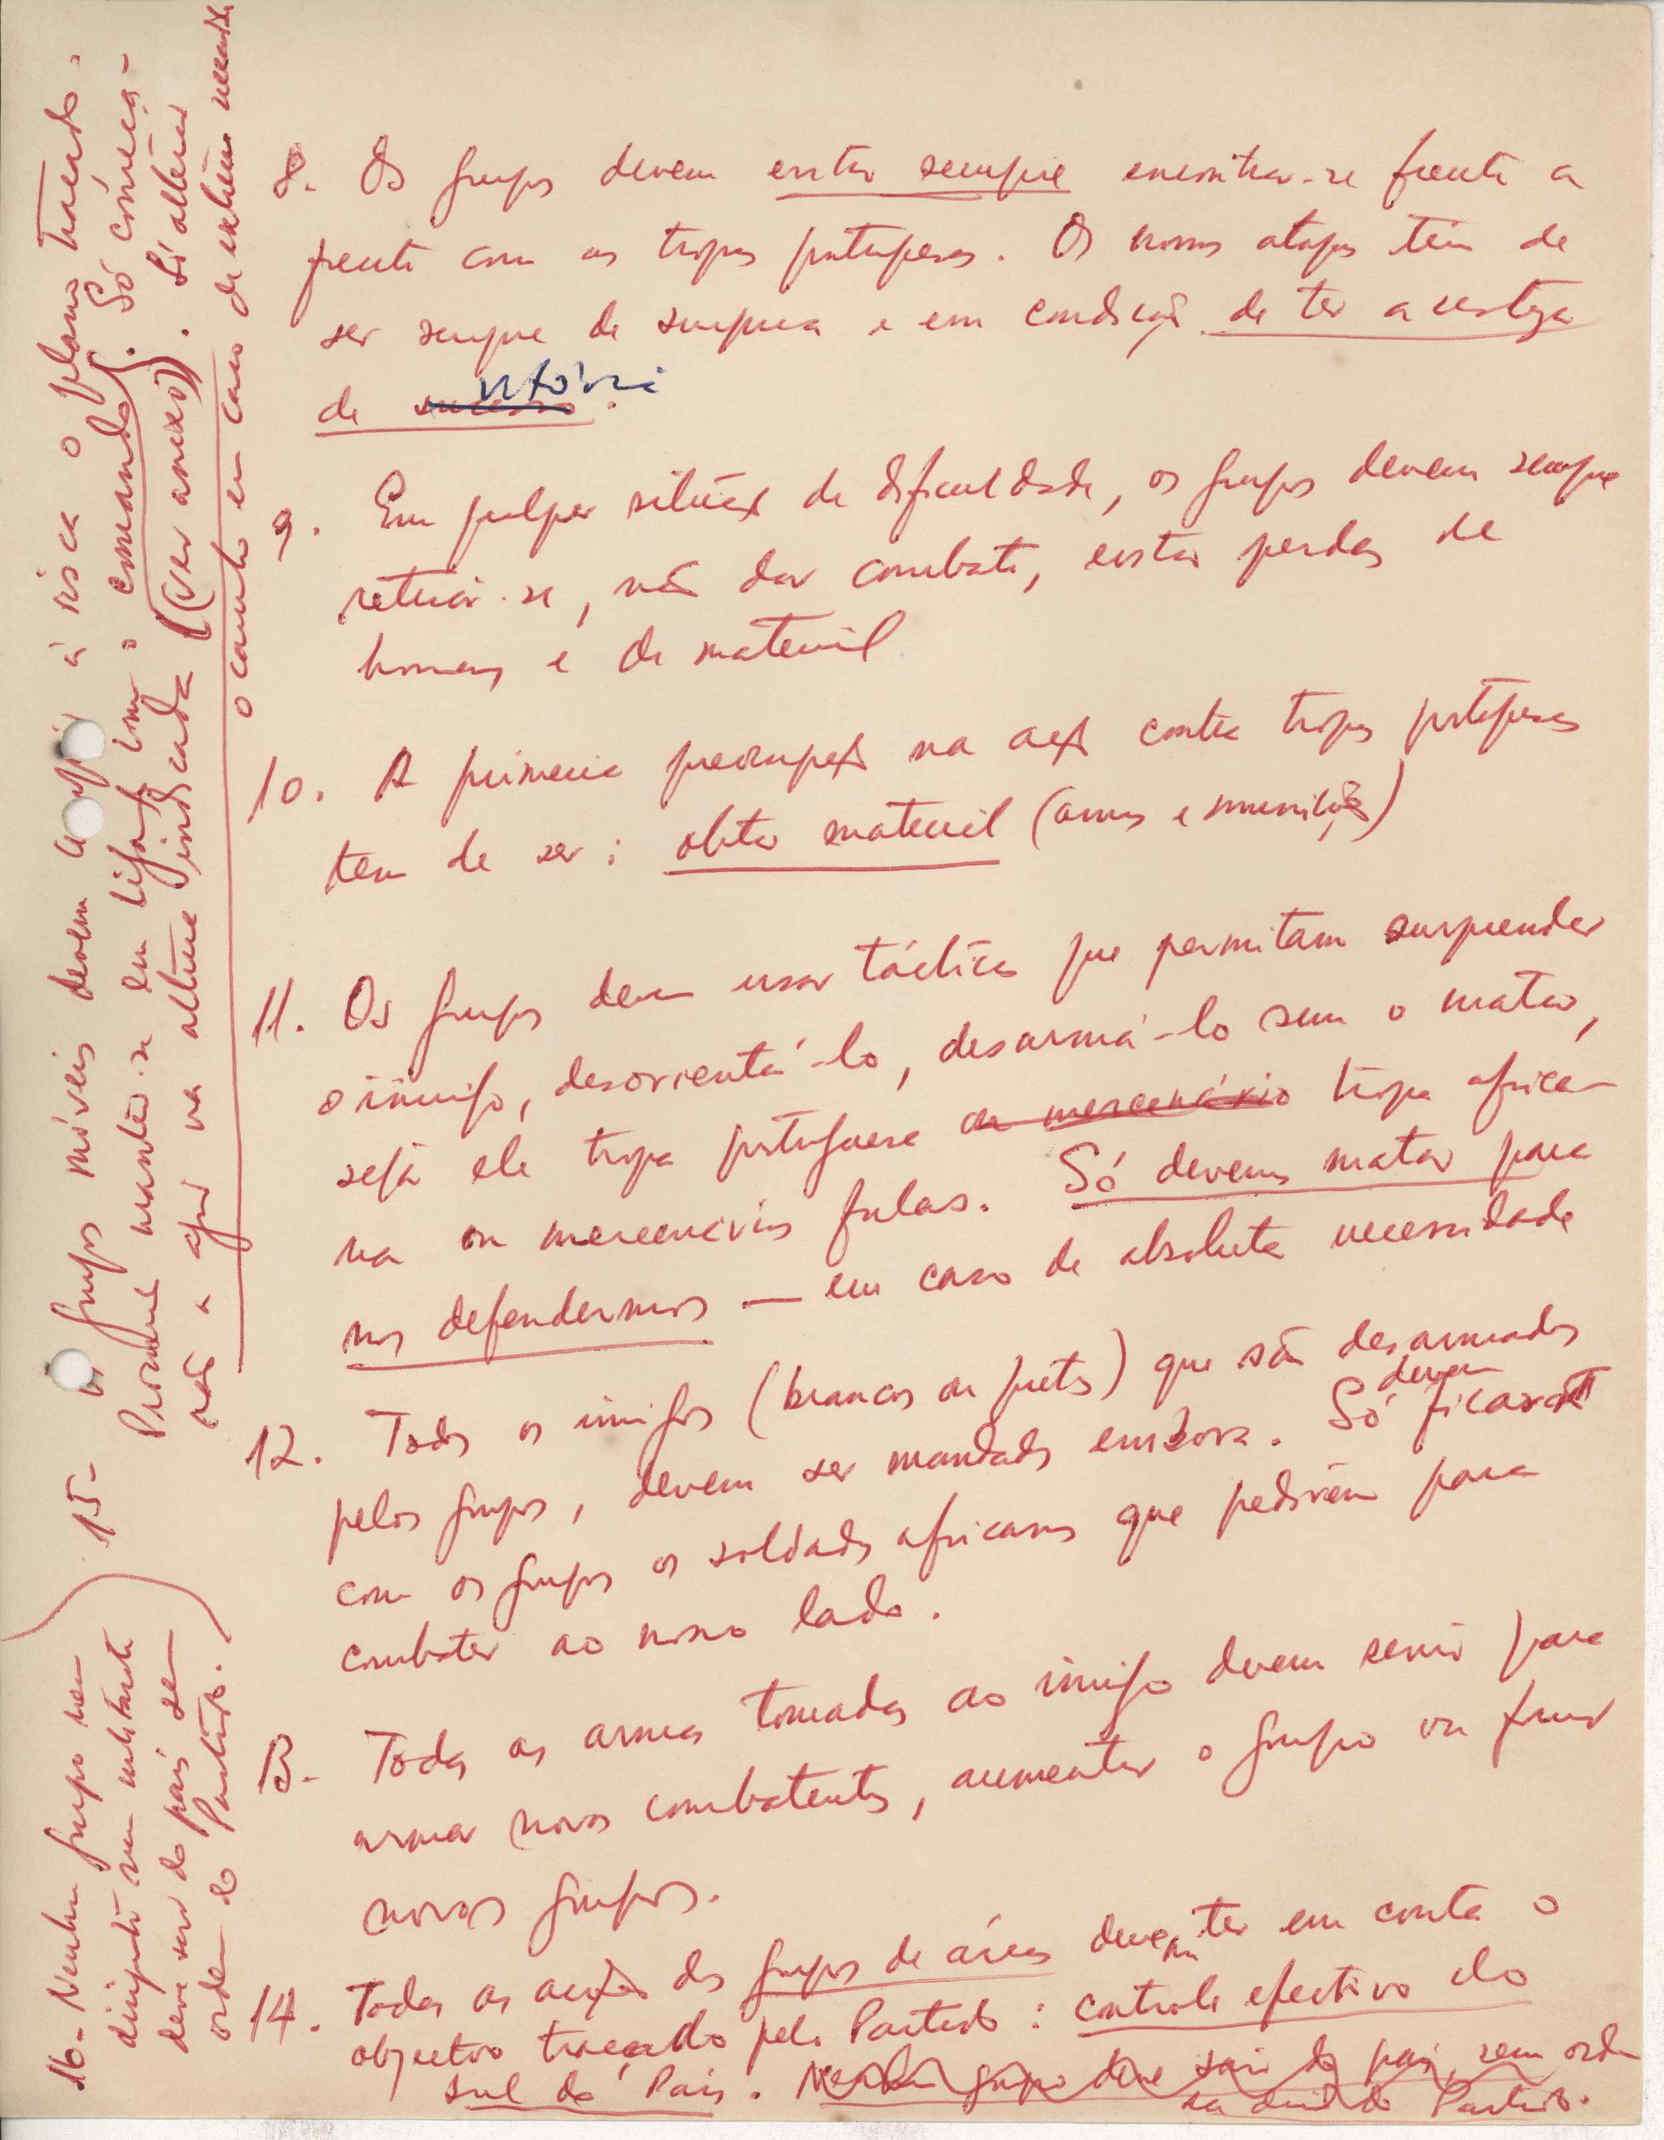 8. Os grupos devem evitar sempre encontrar-se frente a
frente com as tropas portuguesas. Os nossos ataques têm de
ser sempre de surpresa e em condições de ter a certeza
de sucesso vitória.
9. Em qualquer situação de dificuldade, os grupos devem sempre
retirar-se, não dar combate, evitar perdas de
homens e de material
10. A primeira preocupação na acção contra tropas portuguesas
tem de ser: obter material (armas e munições)
11. Os grupos devem usar tácticas que permitam surpreender
o inimigo, desorientá-lo, desarmá-lo sem o matar,
seja ele tropa portuguesa ou mercenário tropa africa-
na ou mercenários fulas. Só devemos matar para
nos defendermos — em caso de absoluta necessidade
12. Todos os inimigos (brancos ou pretos) que são desarmados
pelos grupos, devem ser mandados embora. Só devem ficar
com os grupos os soldados africanos que pedirem para
combater ao nosso lado.
13. Todas as armas tomadas ao inimigo devem servir para
armar novos combatentes, aumentar o grupo ou formar
novos grupos.
14. Todas as acções dos grupos de áreas devem ter em conta o
objectivo traçado pelo Partido: controle efectivo do
sul do País. Nenhum grupo deve sair do país, sem ordem
da do Partido.
15- Os grupos móveis devem à risca o plano traçado.
Procurar manter-se em ligação com o comando. Só começa-
rão a agir na altura indicada (ver anexo). Só alterar
o caminho em caso de extrema necessidade
16- Nenhum grupo nem
dirigente nem militante
deve sair do país sem
ordem do Partido.